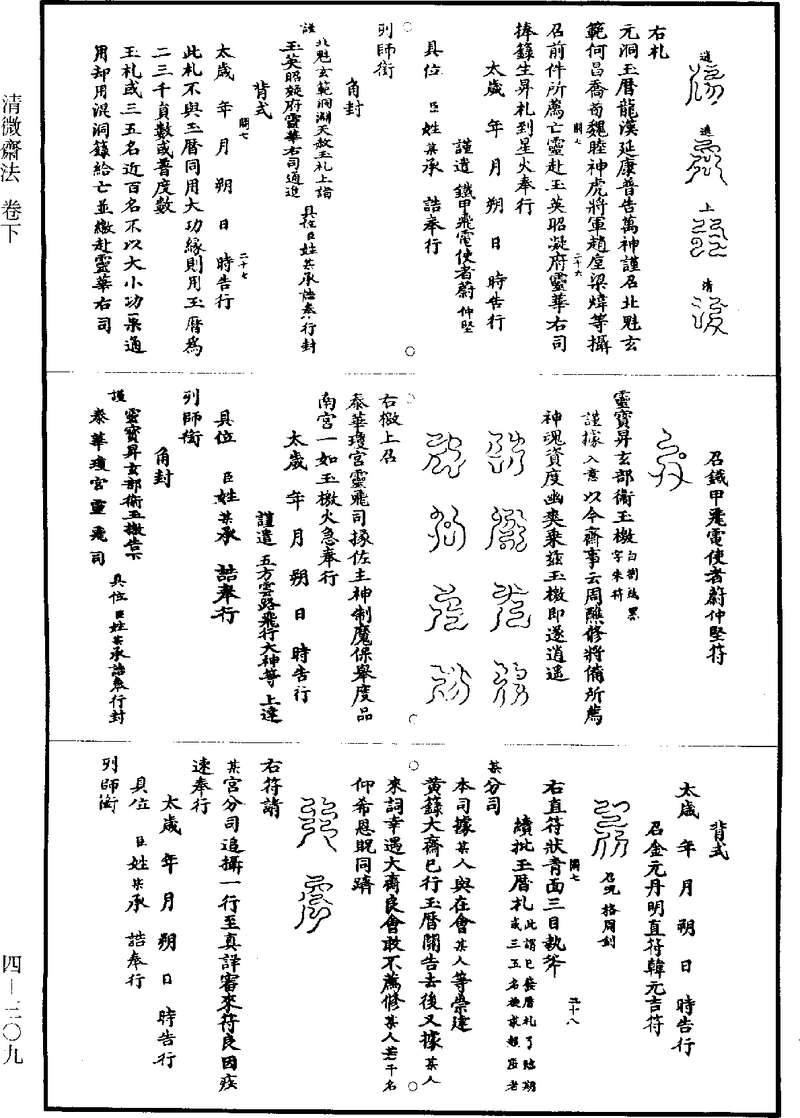 逍
遙
上
清
右札
元洞玉曆龍漢延康普告萬神謹召北魁玄
範何昌喬荀魏睦神虎將軍趙座梁煒等攝
召前件所薦亡靈赴玉英昭凝府靈華右司
捧籙生昇札到星火奉行
太歲 年 月 朔 日 時告行
謹遣 鐵甲飛電使者蔚仲堅
具位 臣姓某承 誥奉行
列師銜
角封
謹 北魁玄範洞淵天赦玉札上詣
玉英昭凝府靈華右司通進 具位臣姓某承誥奉行封
背式
太歲 年 月 朔 日 時告行
此札不與玉曆同用大功緣則用玉曆為
二三千貟數或普度數
玉札或三五名近百名不以大小功果通
用却用混洞籙給亡並繳赴靈華右司
召鐵甲飛電使者蔚仲堅符
靈寶昇玄部衛玉檄 白劄紙黑字朱符
謹據入意以今齋事云周醮修將備所薦
神魂資度幽爽乘玆玉檄即遂逍遙
右檄上召
泰華瓊宮靈飛司掾佐主神制魔保舉度品
南宮一如玉檄火急奉行
太歲 年 月 朔 日 時告行
謹遣 五方雲路飛行大神等 上達
具位 臣姓某承 誥奉行
列師銜
角封
謹 靈寶昇玄部衛玉檄告下
泰華瓊宮靈飛司 具位臣姓某承誥奉行封
背式
太歲 年 月 朔 日 時告行
召金元丹明直符韓元吉符
召咒 格周剑
右直符狀青面三目執斧
續批玉曆札
某分司
本司據某人與在會某人等崇建
黃籙大齋已行玉曆關告去後又據某人
來詞幸遇大齋良會敢不薦修某人若干名
仰希恩貺同躋
右符請
某宮分司追攝一行至真詳審來符良因疾
速奉行
太歲 年 月 朔 日 時告行
具位 臣姓某承 誥奉行
列師銜
清微齋法 卷下
四—三〇九